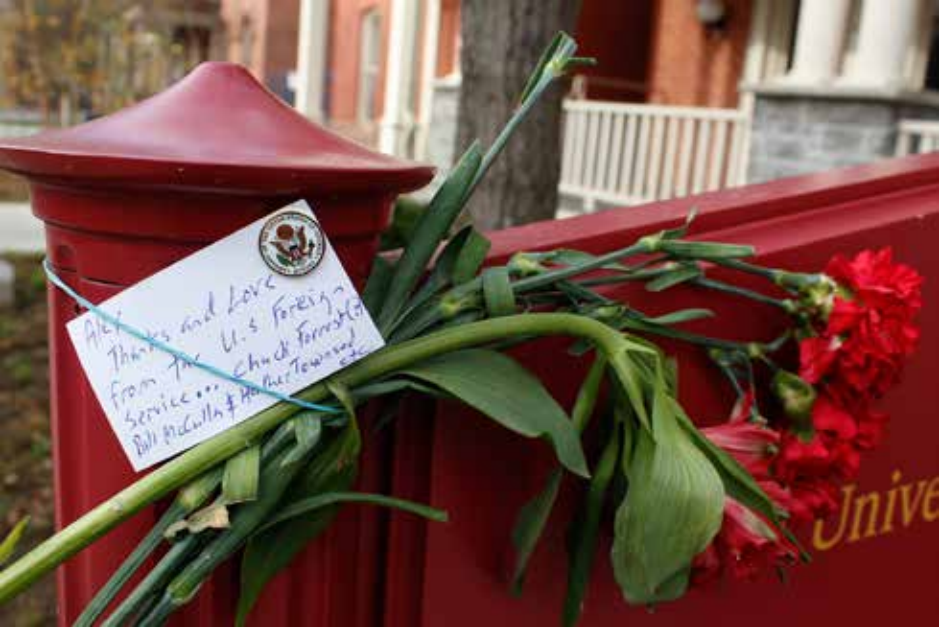 Alex
Thanks and Love
from the U.S Foreign
Service... Chuck Forrest (?)
Bill McCulla & Heather Townsend
etc
Unive